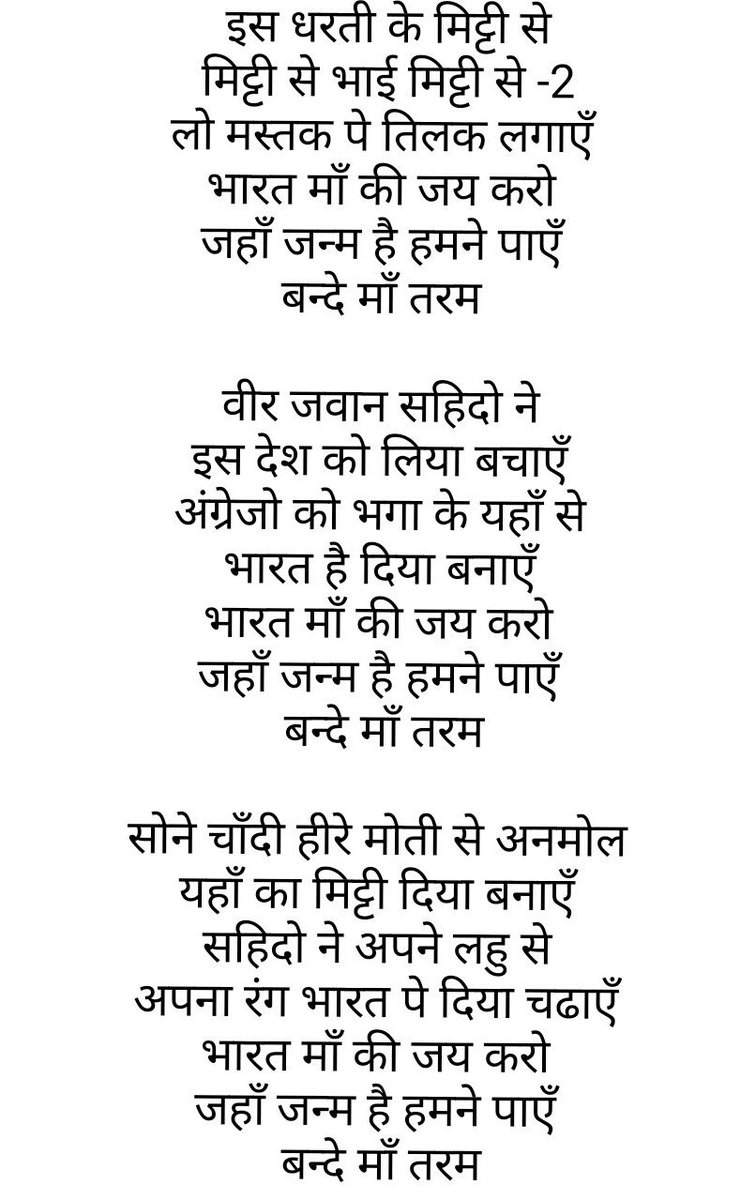 इस धरती के मिट्टी से
मिट्टी से भाई मिट्टी से -2
लो मस्तक पे तिलक लगाएँ
भारत माँ की जय करो
जहाँ जन्म है हमने पाएँ
बन्दे माँ तरम
वीर जवान सहिदो ने
इस देश को लिया बचाएँ
अंग्रेजो को भगा के यहाँ से
भारत है दिया बनाएँ
भारत माँ की जय करो
जहाँ जन्म है हमने पाएँ
बन्दे माँ तरम
सोने चाँदी हीरे मोती से अनमोल
यहाँ का मिट्टी दिया बनाएँ
सहिदो ने अपने लहु से
अपना रंग भारत पे दिया चढाएँ
भारत माँ की जय करो
जहाँ जन्म है हमने पाएँ
बन्दे माँ तरम